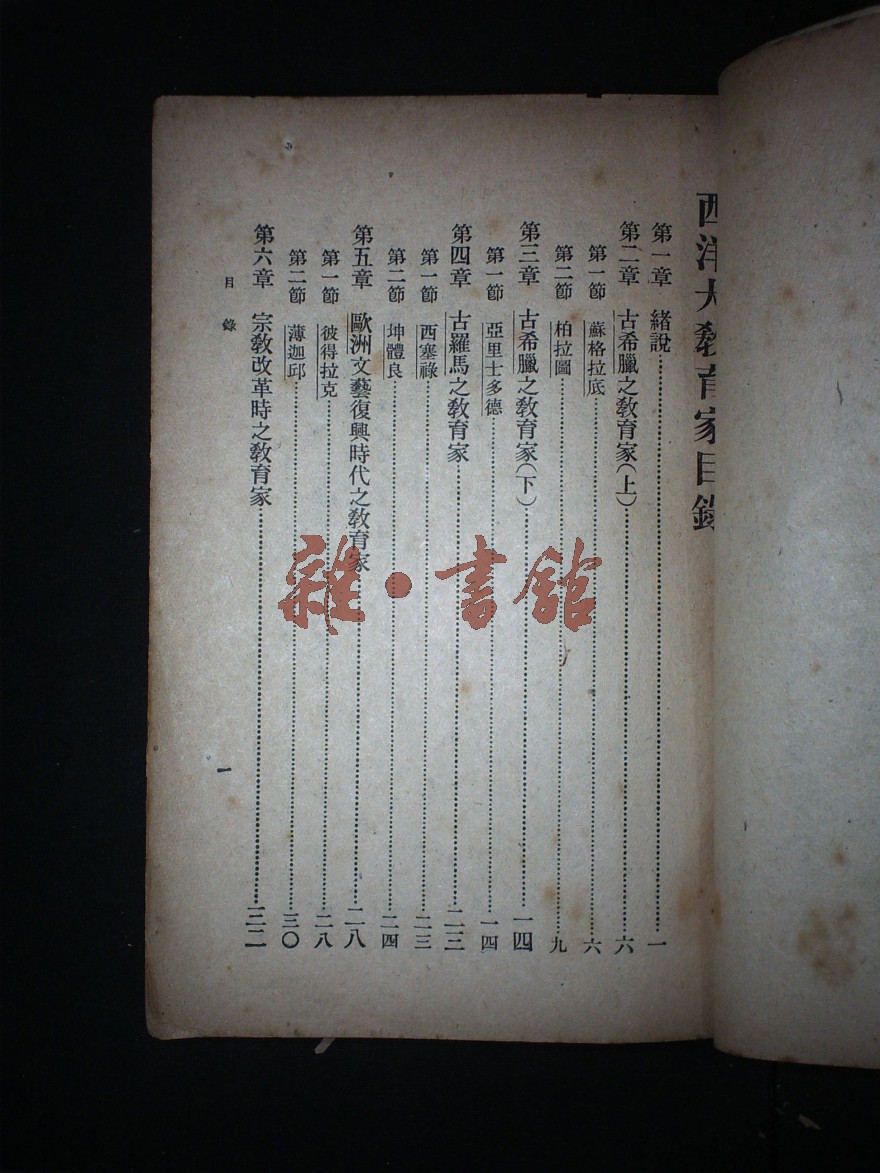 西洋大敎育家目錄
第一章 緖說 一
第二章 古希臘之敎育家(上) 六
第一節 蘇格拉底 六
第二節 柏拉圖 九
第三章 古希臘之敎育家(下) 一四
第一節 亞里士多德 一四
第四章 古羅馬之敎育家 二三
第一節 西塞祿 二三
第二節 坤體良 二四
第五章 歐洲文藝復興時代之敎育家 二八
第一節 彼得拉克 二八
第二節 薄迦邱 三〇
第六章 宗敎改革時之敎育家 三二
目錄
一
雜·書館